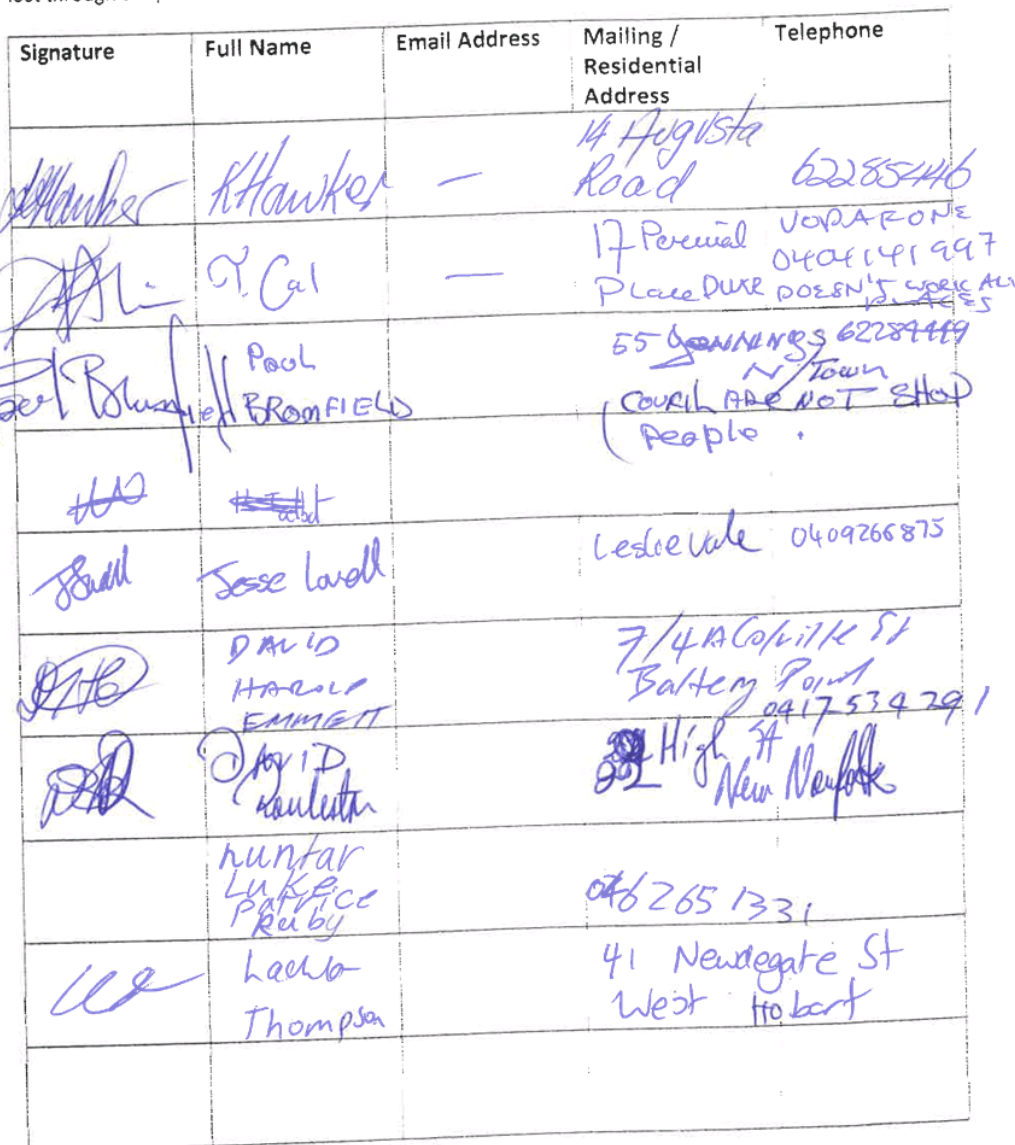 Signature Full Name Email Address Mailing / Residential Address Telephone
KHawker KHawker — 14 Augusta Road 62285446
T. Cal — 17 Place VODAFONE 0404141997 DOESN'T WORK ALL PLACES
BROMFIELD 55 JENNINGS N/Town
COUNCIL ARE NOT SHOP
People .
Jesse Lovell Leslie vale 0409266875
DAVID HAROLD EMMETT 7/4A Colville St Battery Point 0417534291
DAVID High St New Norfolk
hunter
Luke
Patrice
Ruby
6265 1331
Thompson 41 Newdegate St West Hobart